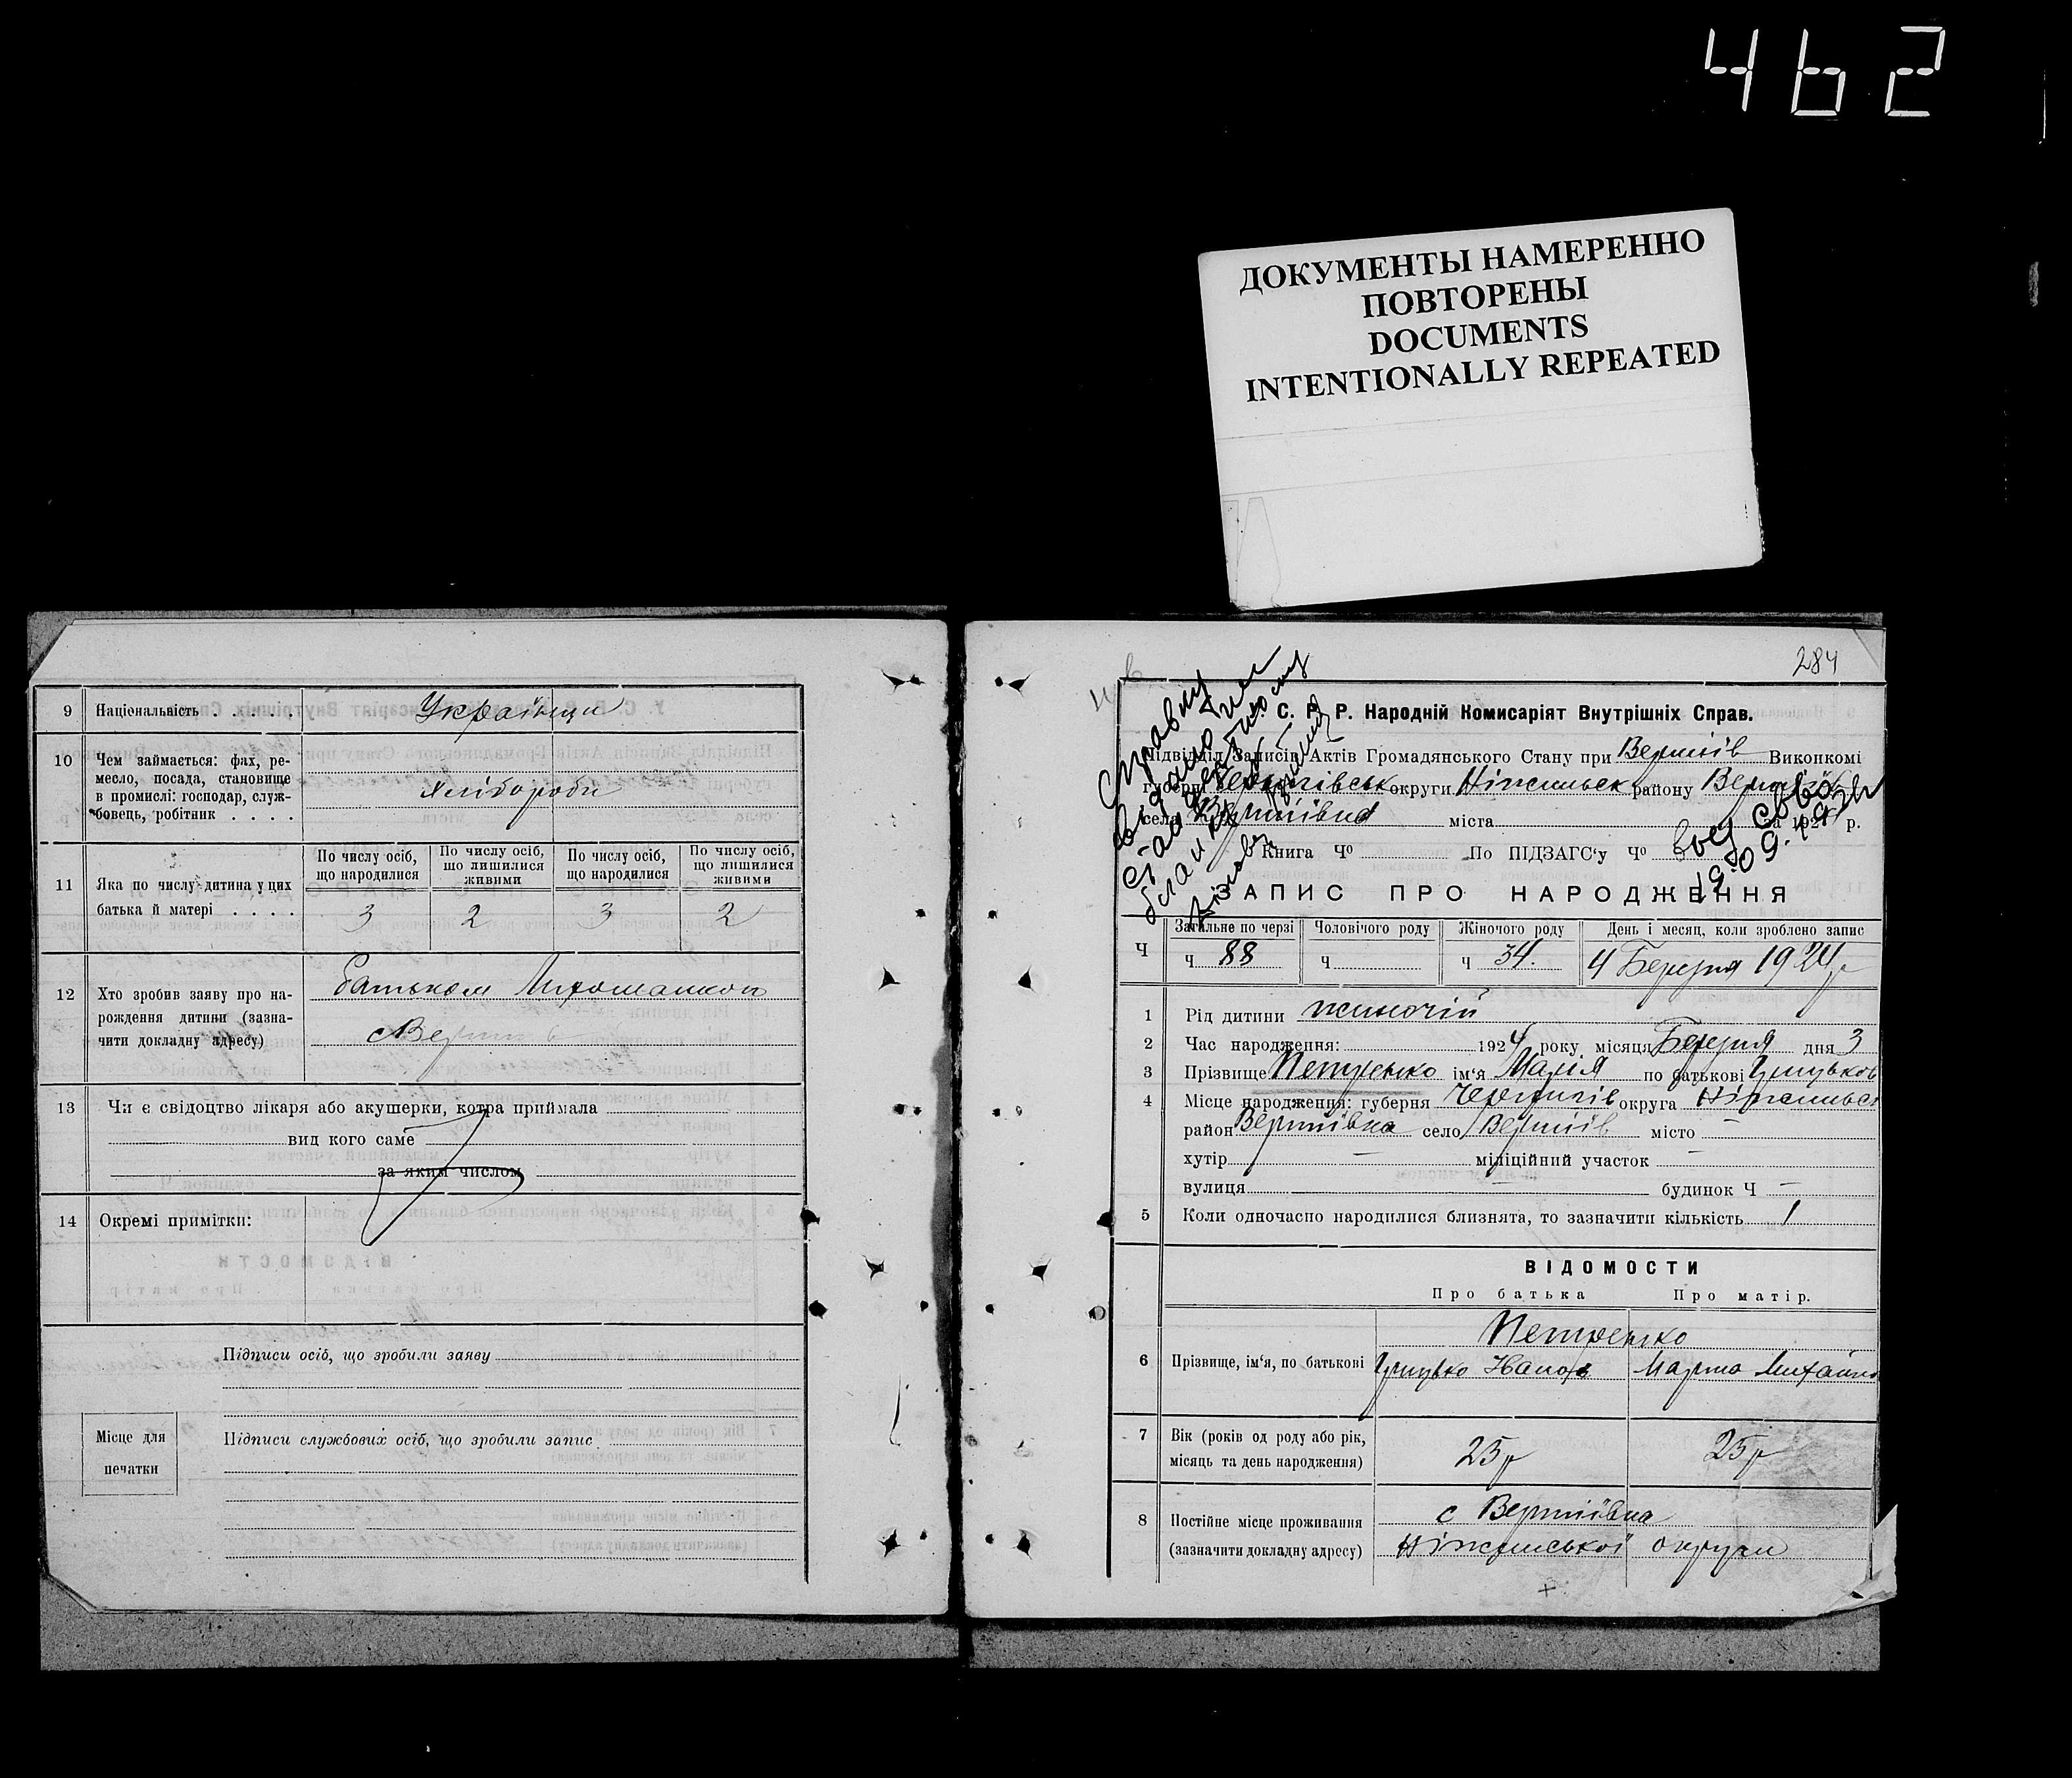 462
ДОКУМЕНТЫ НАМЕРЕННО
ПОВТОРЕНЫ
DOCUMENTS
INTENTIONALLY REPEATED
9 Національність . . . . . Українци
10 Чем займається: фах, ре-
месло, посада, становище
в промислі: господар, служ-
бовець, робітник . . . .
Хлібороби
11 Яка по числу дитина у цих
батька й матері . . . .
По числу осіб, що народилися
По числу осіб, що лишилися живими
По числу осіб, що народилися
По числу осіб, що лишилися живими
3 2 3 2
12 Хто зробив заяву про на-
рождення дитини (зазна-
чити докладну адресу)
Батьком
13 Чи є свідоцтво лікаря або акушерки, котра приймала
вид кого саме
за яким числом
14 Окремі примітки:
Підписи осіб, що зробили заяву
Місце для
печатки
Підписи службових осіб, що зробили запис
284
С. Р. Р. Народній Комисаріят Внутрішніх Справ.
Підвідділ Записів Актів Громадянського Стану при Вертіїв Виконкомі
губерні Чернігівськ округи Ніженськ району
села міста за 192 р.
Книга Ч⁰ По ПІДЗАГС'у Ч⁰
19.09.
ЗАПИС ПРО НАРОДЖЕННЯ
Ч Загальне по черзі Чоловічого роду Жіночого роду День і месяц, коли зроблено запис
ч 88 ч ч 34. 4 Березня 1924 р
1 Рід дитини жиночій
2 Час народження: 1924 року місяця Березня дня 3
3 Прізвище Петренко ім'я Марія по батькові
4 Місце народження: губерня Чернигів округа
район Вертіївка село Вертіїв місто —
хутір — міліційний участок —
вулиця — будинок Ч —
5 Коли одночасно народилися близнята, то зазначити кількість 1
ВІДОМОСТИ
Про батька Про матір.
Петренко
6 Прізвище, ім'я, по батькові Грицько Іванов
7 Вік (років од роду або рік,
місяць та день народження)
25 р 25 р
8 Постійне місце проживання
(зазначити докладну адресу)
с Вертіївка
Ніженської округи